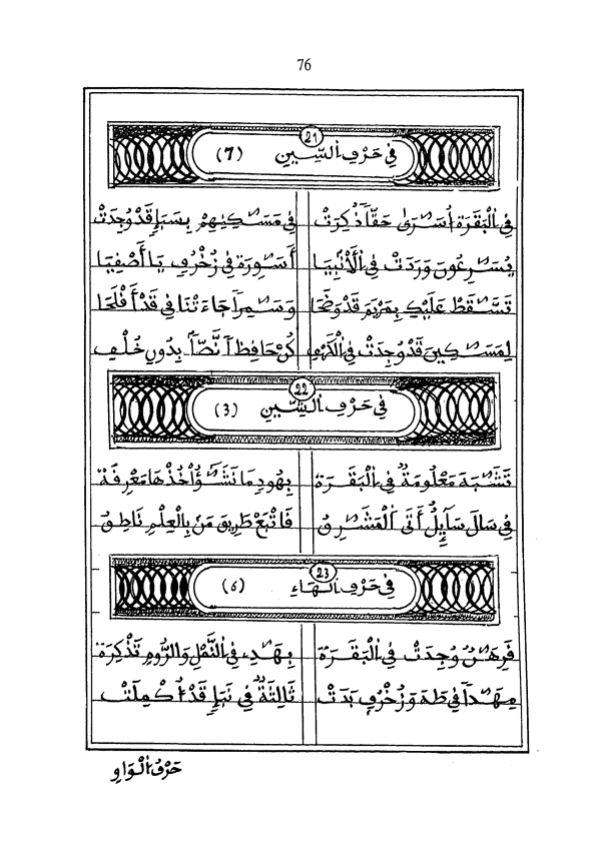 76
21
فِي حَرْفِ السِّينِ (7)
فِي الْبَقَرَةِ أُسَرَىٰ حَقّاً ذُكِرَتْ فِي مَسَكِنِهِمْ بِسَبَإٍ قَدْ وُجِدَتْ
يُسَرِعُونَ وَرَدَتْ فِي الْأَنْبِيَا أَسَوِرَةٌ فِي زُخْرُفٍ يَا أَصْفِيَا
تَسَّقَطْ عَلَيْكِ بِمَرْيَمَ قَدْ وَضَحَا وَسَمِراً جَاءَتْنَا فِي قَدْ أَفْلَحَا
لِمَسَكِينَ قَدْ وُجِدَتْ فِي الْكَهْفِ كُنْ حَافِظاً نَّصّاً بِدُونِ خُلْفِ
22
فِي حَرْفِ الشِّينِ (3)
تَشَبَهَ مَعْلُومَةٌ فِي الْبَقَرَةْ بِهُودِ مَا نَشَؤُاْ خُذْهَا مَعْرِفَةْ
فِي سَالَ سَآئِلٌ أَتَى الْمَشَرِقُ فَاتْبَعْ طَرِيقَ مَنْ بِالْعِلْمِ نَاطِقُ
23
فِي حَرْفِ الْهَاءِ (6)
فَرِهَنٌ وُجِدَتْ فِي الْبَقَرَةْ بِهَدِ فِي النَّمْلِ وَالرُّومِ تَذْكِرَةْ
مِهَداً فِي طَهَ وَزُخْرُفٍ بَدَتْ ثَالِثَةٌ فِي نَبَإٍ قَدْ أُكْمِلَتْ
حَرْفُ الْوَاوِ